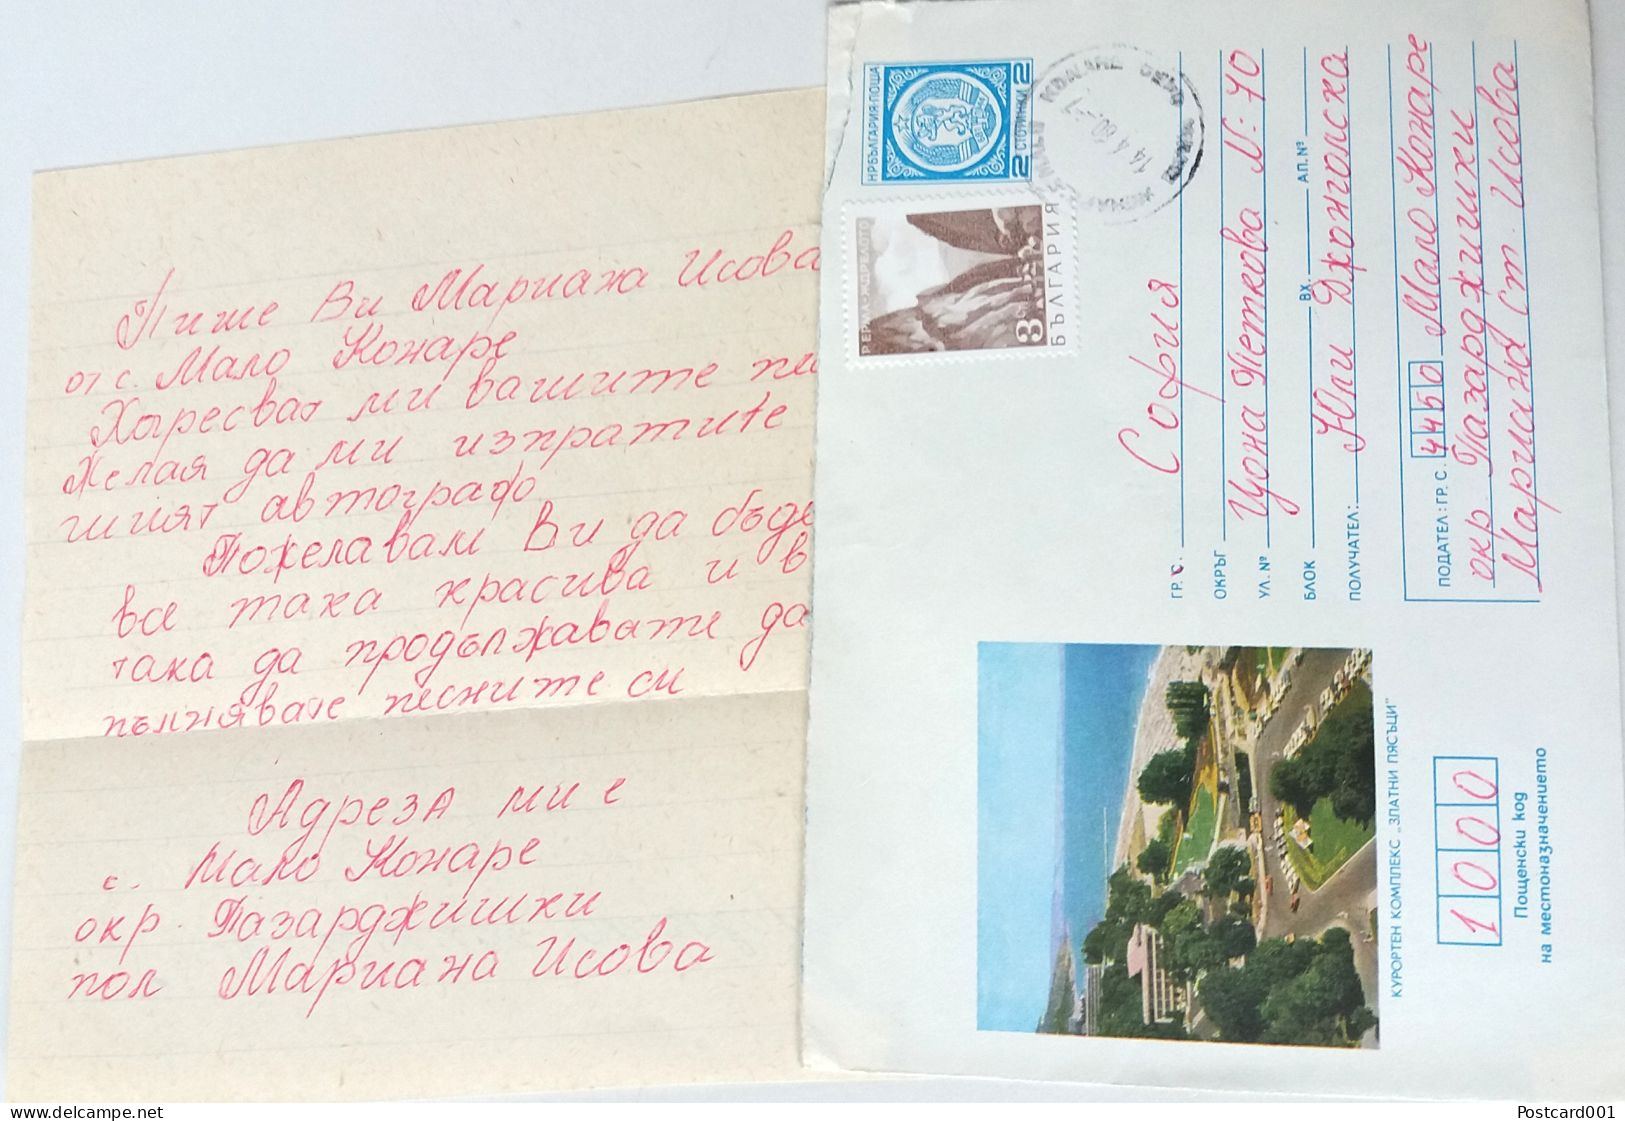 Пише Ви Мариана Исова
от с. Мало Конаре
Харесват ми вашите
Желая да ми изпратите
шият автограф
Пожелавам Ви да бъде
все така красива и в
така да продължавате да
пълнявате песните си
Адреза ми е
с. Мало Конаре
окр. Пазарджишки
пол Мариана Исова
НР БЪЛГАРИЯ·ПОЩА
2 СТОТИНКИ 2
Р. ЕРМА·ЖДРЕЛОТО
3 СТ
БЪЛГАРИЯ
14.4.80
ГР. С. София
ОКРЪГ
УЛ. № Цона Петкова №: 70
БЛОК ВХ. АП. №
ПОЛУЧАТЕЛ: Юли Джонголска
ПОДАТЕЛ: ГР. С. 4450 Мало Конаре
окр. Пазарджишки
Мариана Ст. Исова
КУРОРТЕН КОМПЛЕКС „ЗЛАТНИ ПЯСЪЦИ"
1000
Пощенски код
на местоназначението
Postcard001